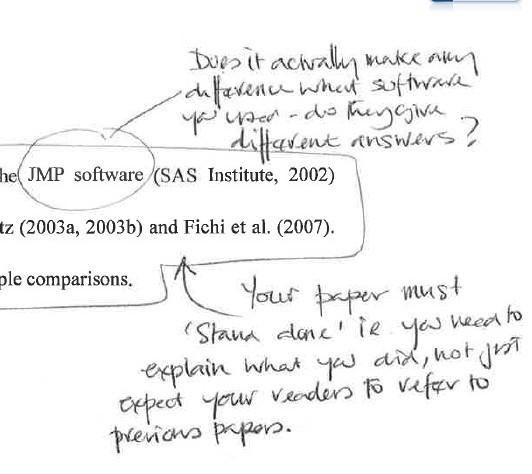 Does it actually make any
difference what software
you used - do they give
different answers?
he JMP software (SAS Institute, 2002)
tz (2003a, 2003b) and Fichi et al. (2007).
ple comparisons.
Your paper must
'stand alone' ie you need to
explain what you did, not just
expect your readers to refer to
previous papers.